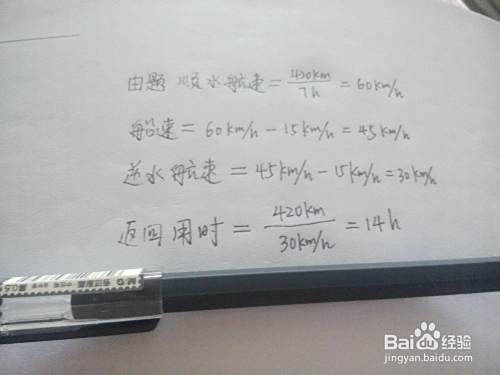 由题 顺水航速 = 420km / 7h = 60km/h
船速 = 60km/h - 15km/h = 45km/h
逆水航速 = 45km/h - 15km/h = 30km/h
返回用时 = 420km / 30km/h = 14h
Baidu 经验
jingyan.baidu.com